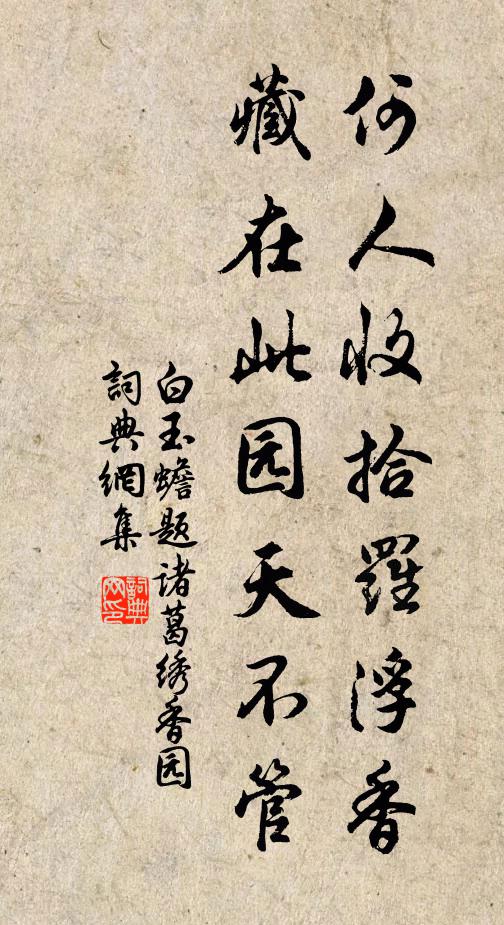 何人收拾羅浮香
藏在此园天不管
白玉蟾题诸葛绣香园
詞典網集
詞典网印